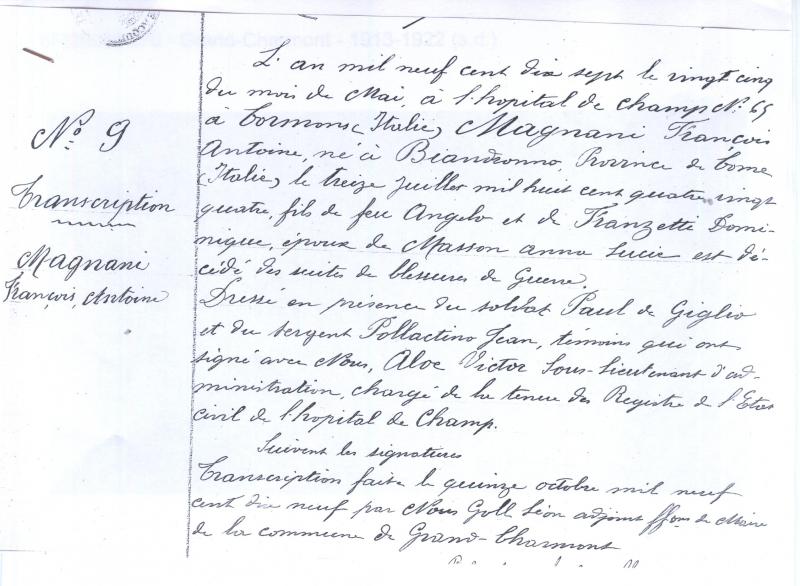 Grand-Charmont - 1913-1922 (s.d.)
N° 9
Transcription
Magnani
François, Antoine
L'an mil neuf cent dix sept le vingt cinq
du mois de Mai, à l'hopital de champ N° 65
à Cormons (Italie) Magnani François
Antoine, né à Biandronno, Province de Come
(Italie) le treize juillet mil huit cent quatre vingt
quatre, fils de feu Angelo et de Franzetti Domi-
nique, époux de Masson anna Lucie est dé-
cédé des suites de blessures de Guerre.
Dressé en présence du soldat Paul de Giglio
et du sergent Pollactino Jean, témoins qui ont
signé avec Nous, Aloe Victor Sous-Lieutenant d'ad-
ministration, chargé de la tenue des Registre de l'Etat
civil de l'hopital de Champ.
Suivent les signatures
Transcription faite le quinze octobre mil neuf
cent dix neuf par Nous Goll Léon adjoint ffons de Maire
de la commune de Grand-Charmont